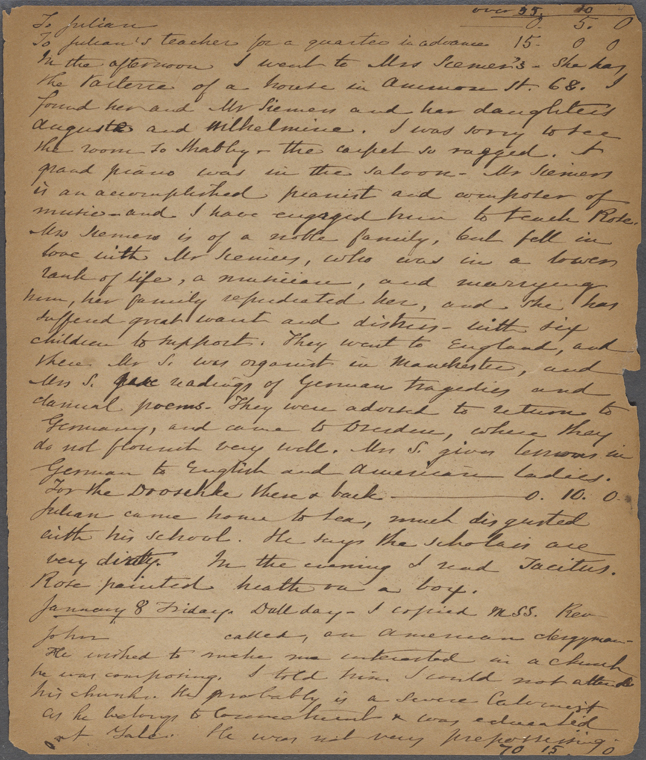 over 55. 10
To Julian 0. 5. 0
To Julian's teacher for a quarter in advance 15. 0 0
In the afternoon I went to Mrs Siemers - She has
the Parterre of a house in Ammon St. 68. I
found her and Mr Siemers and her daughters
Auguste and Wilhelmine. I was sorry to see
the room so shabby & the carpet so ragged. A
grand piano was in the saloon - Mr Siemers
is an accomplished pianist and composer of
music - and I have engaged him to teach Rose.
Mrs Siemers is of a noble family, but fell in
love with Mr Siemers, who was in a lower
rank of life, a musician, and marrying
him, her family repudiated her, and she has
suffered great want and distress - with six
children to support. They went to England, and
there Mr S. was organist in Manchester, and
Mrs S. gave readings of German tragedies and
classical poems. They were advised to return to
Germany, and came to Dresden, where they
do not flourish very well. Mrs S. gives lessons in
German to English and American ladies.
For the Drooschke there & back 0. 10. 0
Julian came home to tea, much disgusted
with his school. He says the scholars are
very dirty. In the evening I read Tacitus.
Rose painted heath on a box.
January 8 Friday. Dull day - I copied MSS. Rev
John called, an American clergyman -
He wished to make me interested in a church
he was composing. I told him I could not attend
his church. He probably is a severe Calvinist
as he belongs to Connecticut & was educated
at Yale. He was not very prepossessing.
70 15. 0